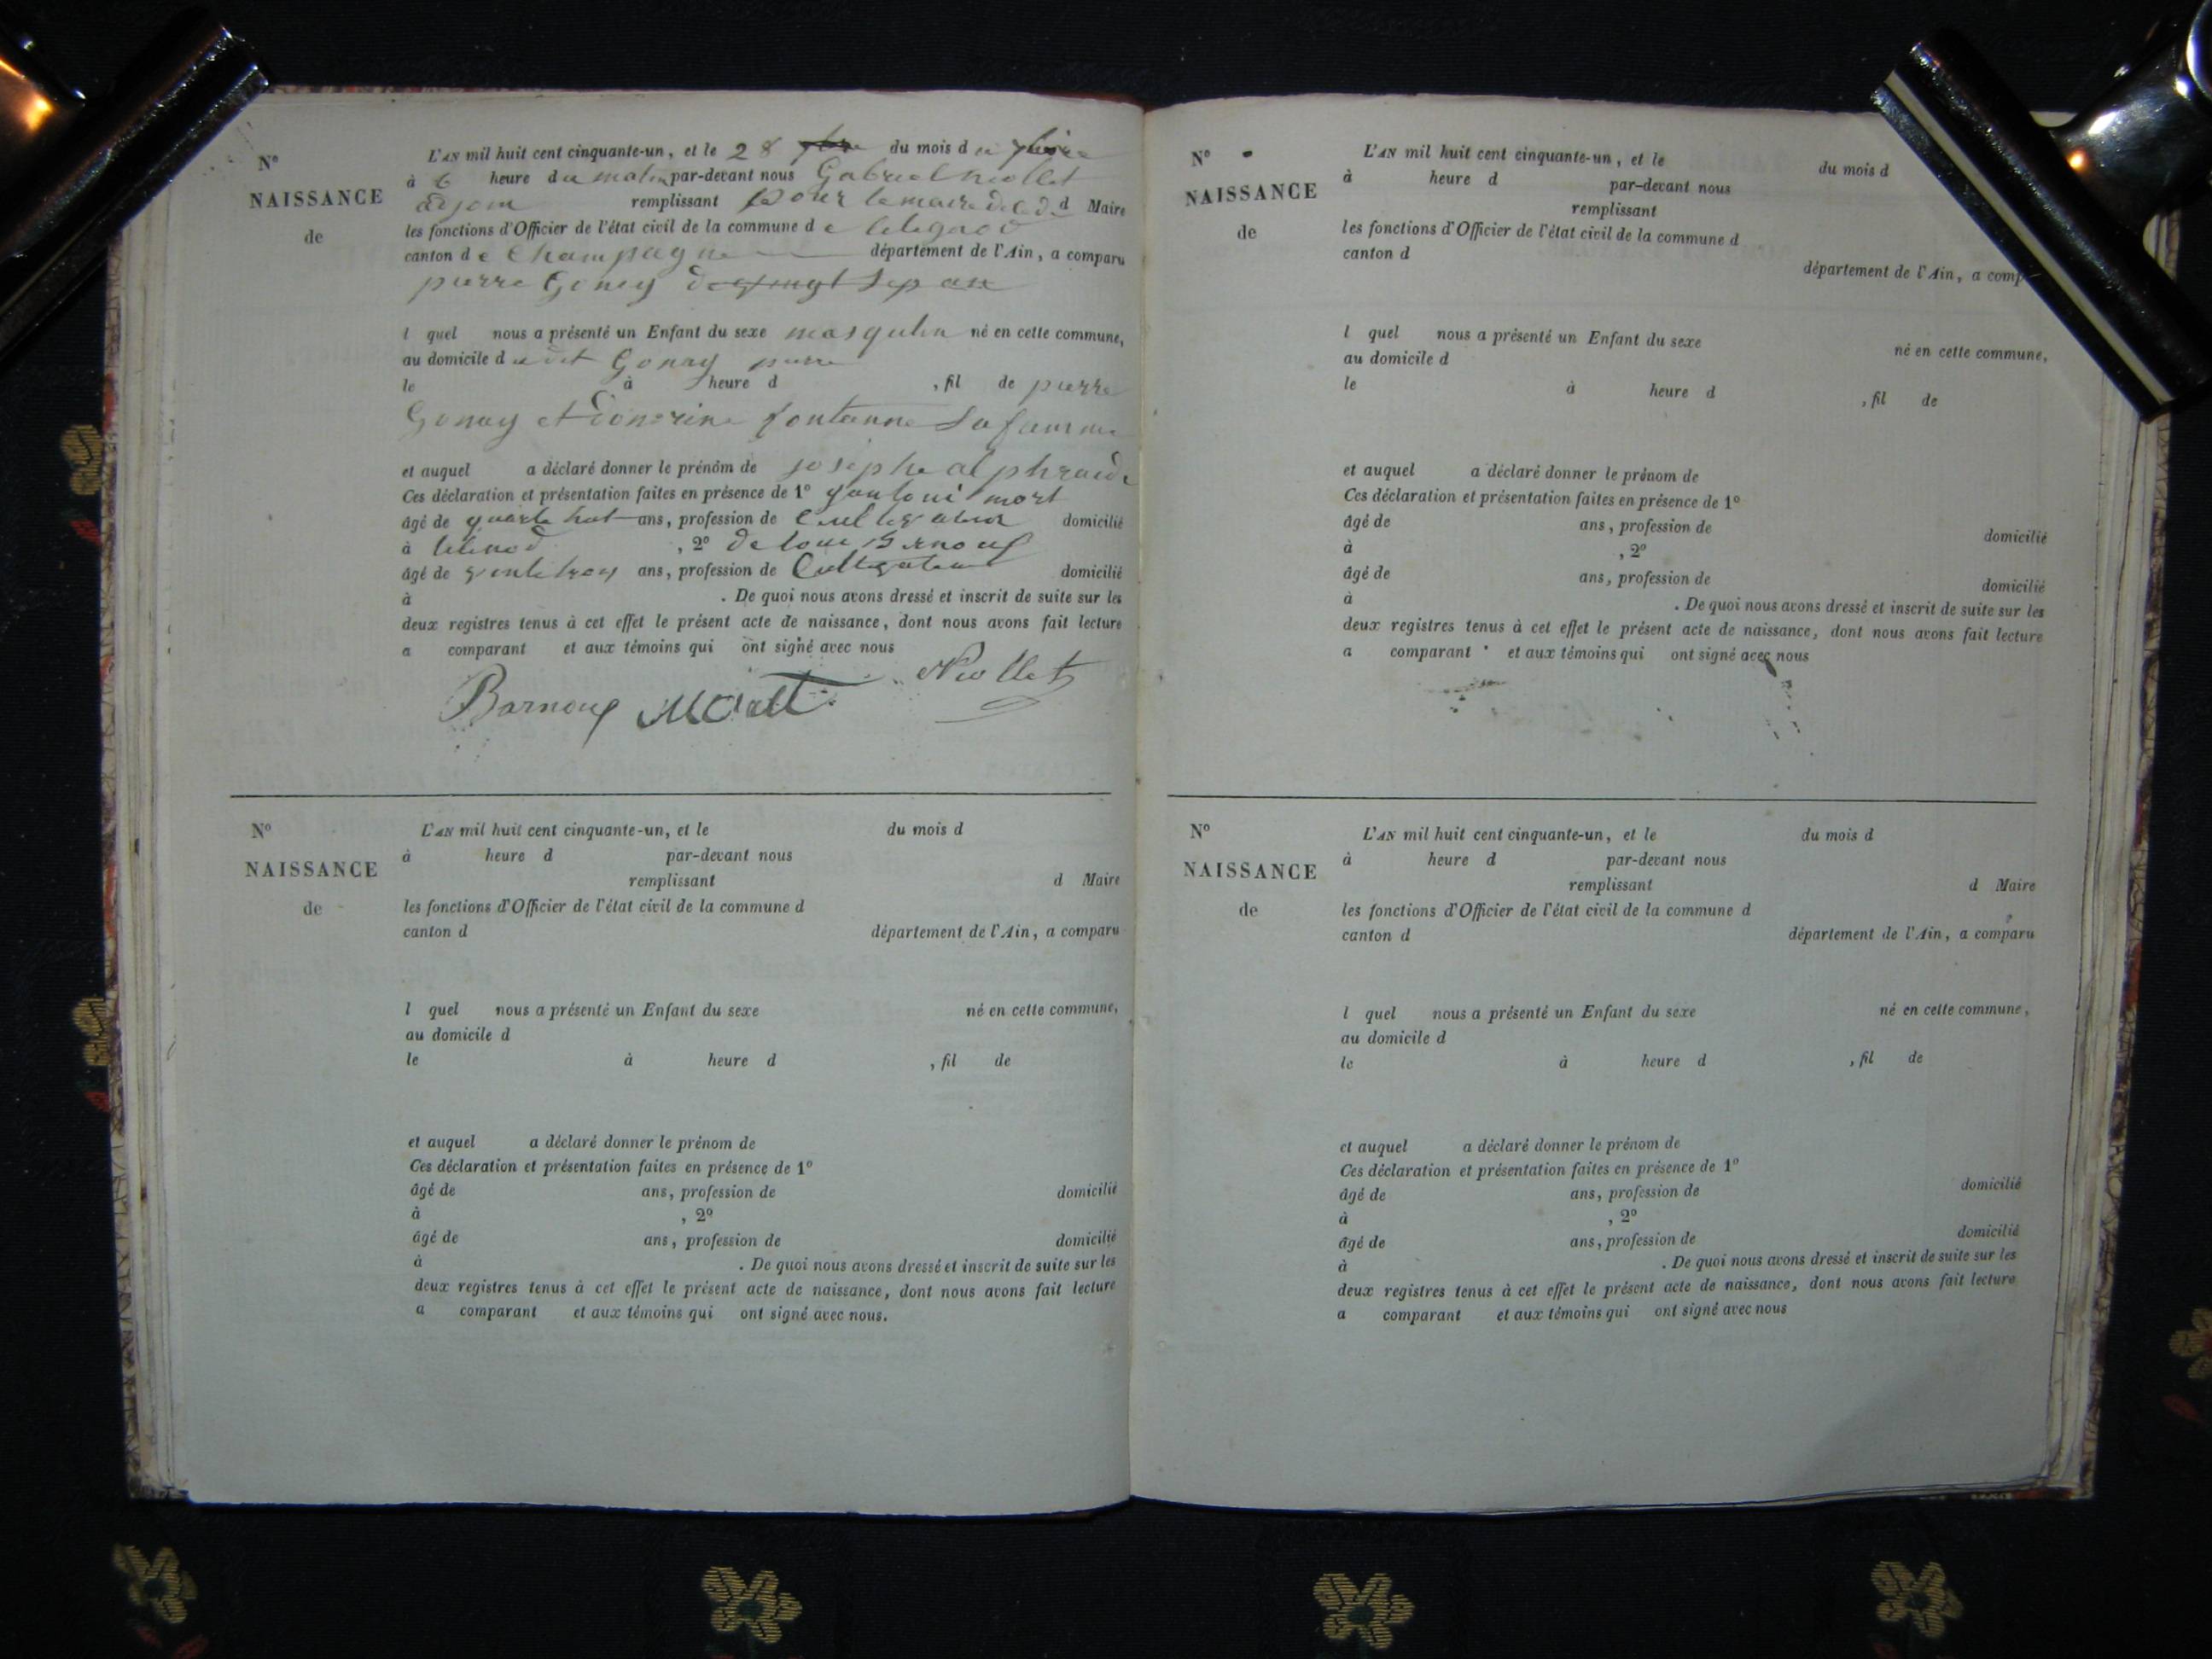 N°
NAISSANCE
de
L'AN mil huit cent cinquante-un, et le 28 du mois d
à 6 heure du matin par-devant nous Gabriel Niollet
remplissant pour le maire d Maire
les fonctions d'Officier de l'état civil de la commune de
canton de Champagne département de l'Ain, a comparu
pierre Gonay
l quel nous a présenté un Enfant du sexe masqulin né en cette commune,
au domicile dudit Gonay pierre
le à heure d , fil de pierre
Gonay et fontanne sa famme
et auquel a déclaré donner le prénom de josephe
Ces déclaration et présentation faites en présence de 1° mort
âgé de ans, profession de domicilié
à , 2°
âgé de ans, profession de domicilié
à . De quoi nous avons dressé et inscrit de suite sur les
deux registres tenus à cet effet le présent acte de naissance, dont nous avons fait lecture
a comparant et aux témoins qui ont signé avec nous
Niollet
N°
NAISSANCE
de
L'AN mil huit cent cinquante-un, et le du mois d
à heure d par-devant nous
remplissant d Maire
les fonctions d'Officier de l'état civil de la commune d
canton d département de l'Ain, a comparu
l quel nous a présenté un Enfant du sexe né en cette commune,
au domicile d
le à heure d , fil de
et auquel a déclaré donner le prénom de
Ces déclaration et présentation faites en présence de 1°
âgé de ans, profession de domicilié
à , 2°
âgé de ans, profession de domicilié
à . De quoi nous avons dressé et inscrit de suite sur les
deux registres tenus à cet effet le présent acte de naissance, dont nous avons fait lecture
a comparant et aux témoins qui ont signé avec nous.
N°
NAISSANCE
de
L'AN mil huit cent cinquante-un, et le du mois d
à heure d par-devant nous
remplissant
les fonctions d'Officier de l'état civil de la commune d
canton d département de l'Ain, a comp
l quel nous a présenté un Enfant du sexe né en cette commune,
au domicile d
le à heure d , fil de
et auquel a déclaré donner le prénom de
Ces déclaration et présentation faites en présence de 1°
âgé de ans, profession de domicilié
à , 2°
âgé de ans, profession de domicilié
à . De quoi nous avons dressé et inscrit de suite sur les
deux registres tenus à cet effet le présent acte de naissance, dont nous avons fait lecture
a comparant et aux témoins qui ont signé avec nous
N°
NAISSANCE
de
L'AN mil huit cent cinquante-un, et le du mois d
à heure d par-devant nous
remplissant d Maire
les fonctions d'Officier de l'état civil de la commune d
canton d département de l'Ain, a comparu
l quel nous a présenté un Enfant du sexe né en cette commune,
au domicile d
le à heure d , fil de
et auquel a déclaré donner le prénom de
Ces déclaration et présentation faites en présence de 1°
âgé de ans, profession de domicilié
à , 2°
âgé de ans, profession de domicilié
à . De quoi nous avons dressé et inscrit de suite sur les
deux registres tenus à cet effet le présent acte de naissance, dont nous avons fait lecture
a comparant et aux témoins qui ont signé avec nous